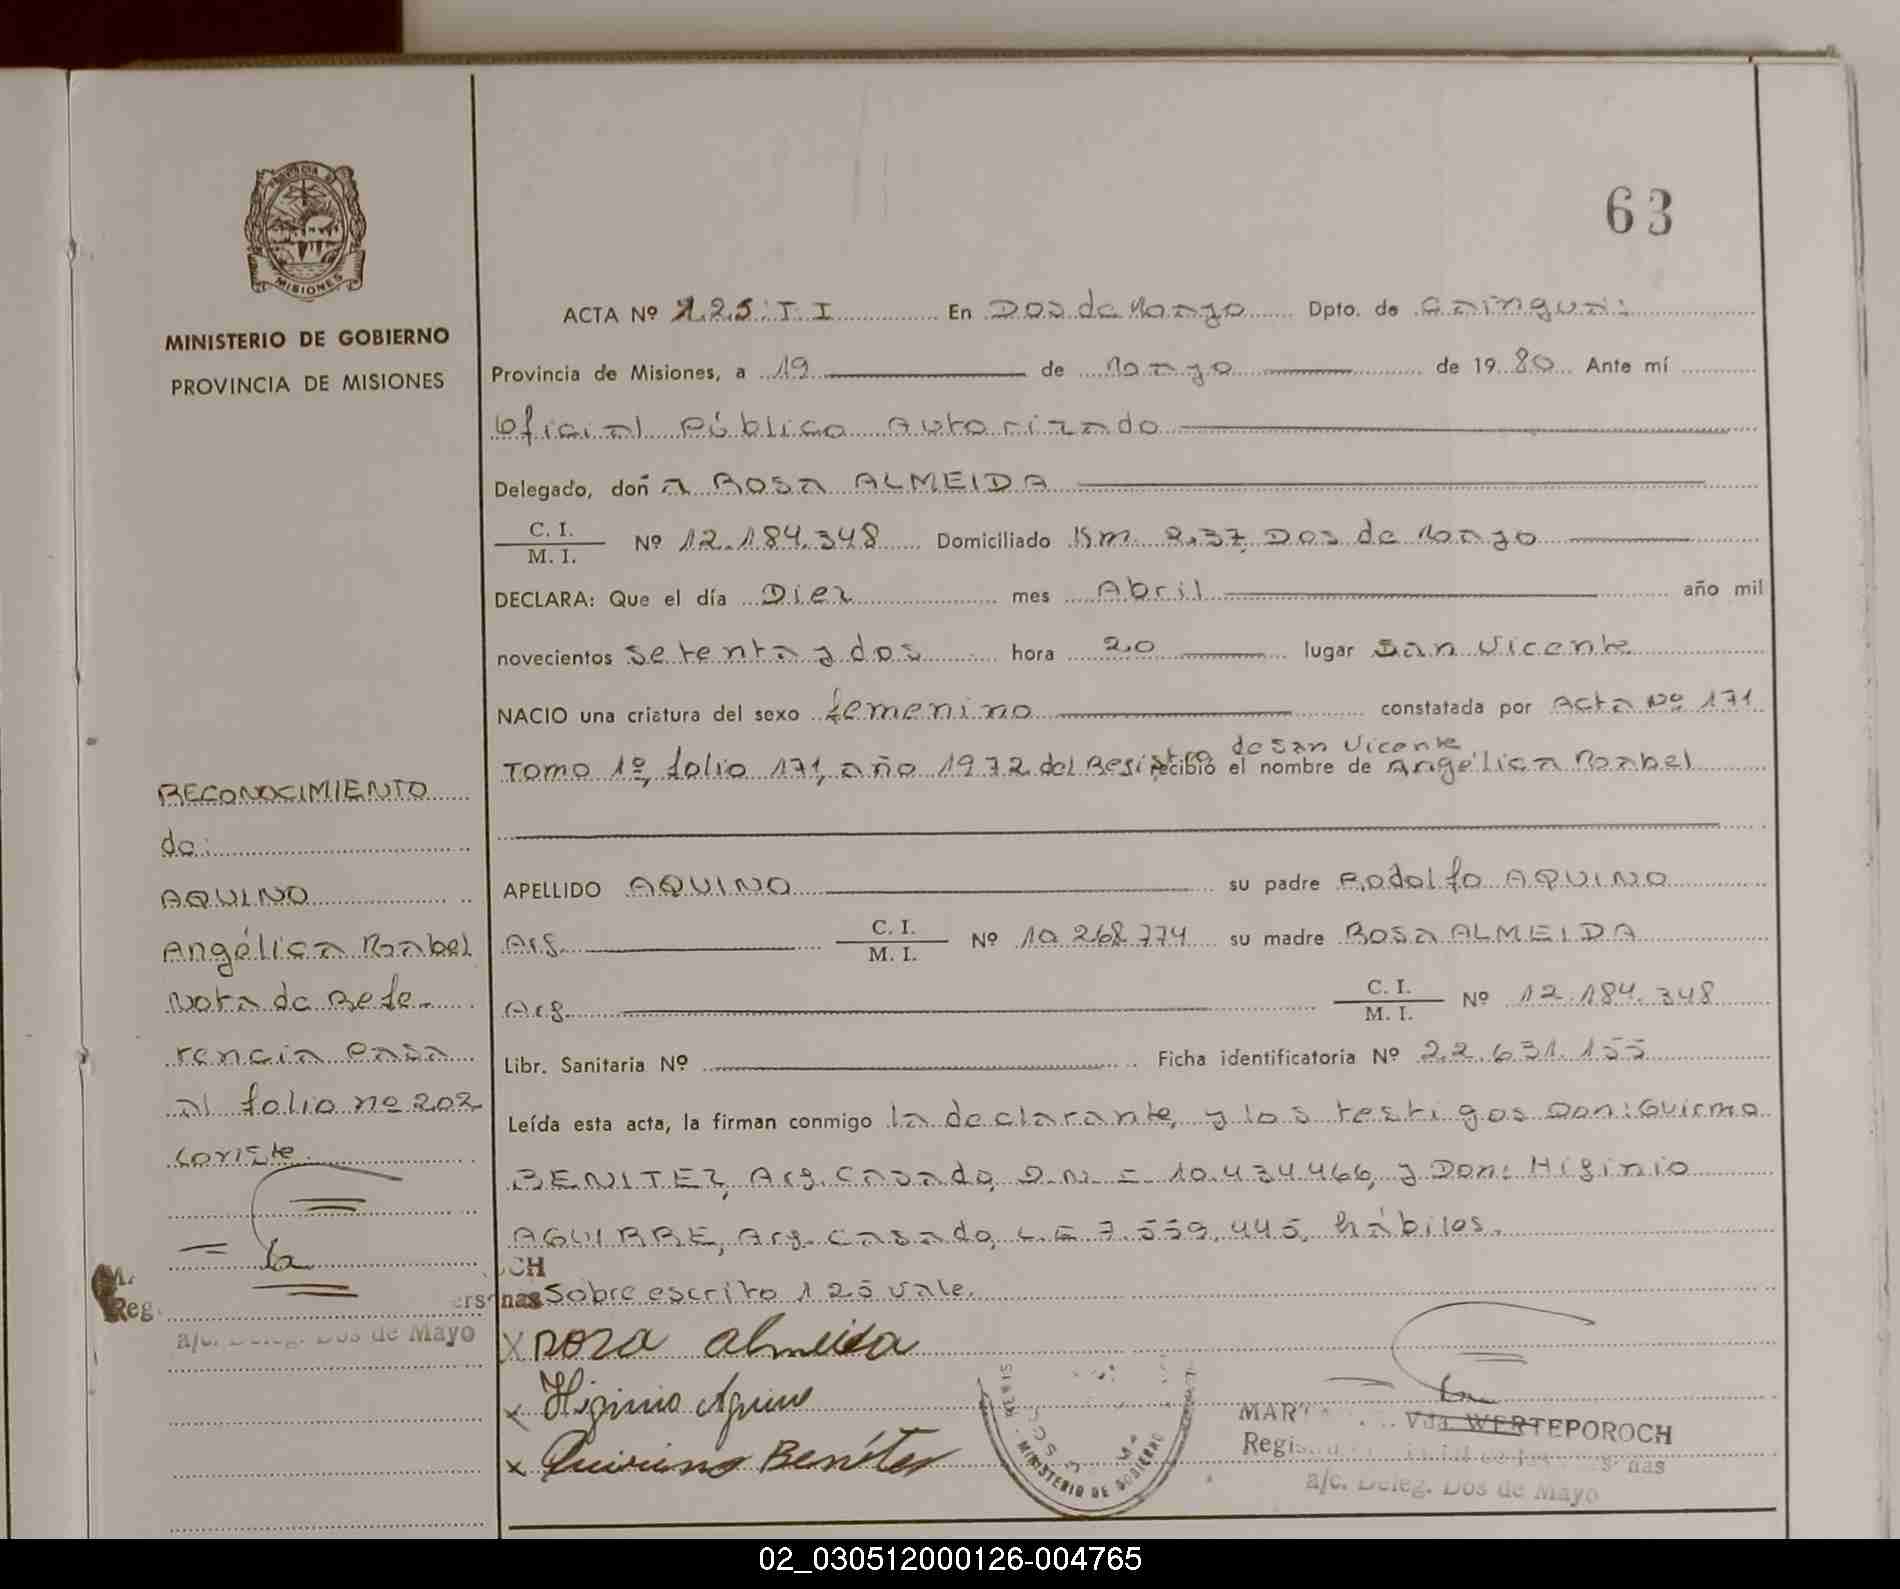 PROVINCIA DE
MISIONES
MINISTERIO DE GOBIERNO
PROVINCIA DE MISIONES
63
ACTA Nº 125: T I En Dos de Mayo Dpto. de Cainguás:
Provincia de Misiones, a 19 de Mayo de 19 80 Ante mí
Oficial Público Autorizado
Delegado, doñ a ROSA ALMEIDA
C. I.
M. I.
Nº 12.184.348 Domiciliado Km. 237, Dos de Mayo
DECLARA: Que el día Diez mes Abril año mil
novecientos setenta y dos hora 20 lugar San Vicente
NACIO una criatura del sexo femenino constatada por Acta Nº 171
de San Vicente
Tomo 1º, folio 171, año 1972 del Registro recibió el nombre de Angélica Mabel
APELLIDO AQUINO su padre Rodolfo AQUINO
Arg. C. I.
M. I. Nº 10.268.774 su madre ROSA ALMEIDA
Arg. C. I.
M. I. Nº 12.184.348
Libr. Sanitaria Nº Ficha identificatoria Nº 22.631.155
Leída esta acta, la firman conmigo la declarante, y los testigos Don: Guirmo
BENITEZ, Arg. Casado, D.N.I. 10.434.466, y Don: Higinio
AGUIRRE, Arg. Casado, L.E 7.559.445, hábiles.
CH
nas Sobre escrito 125 vale.
X Rosa almeida
x Higinio Aguirre
x Quirino Benítez
RECONOCIMIENTO
de:
AQUINO
Angélica Mabel
Nota de Refe-
rencia Pasa
al folio nº 202
Coriste.
Reg.
a/c. Deleg. Dos de Mayo
MINISTERIO DE GOBIERNO
Vda. WERTEPOROCH
a/c. Deleg. Dos de Mayo
02_030512000126-004765